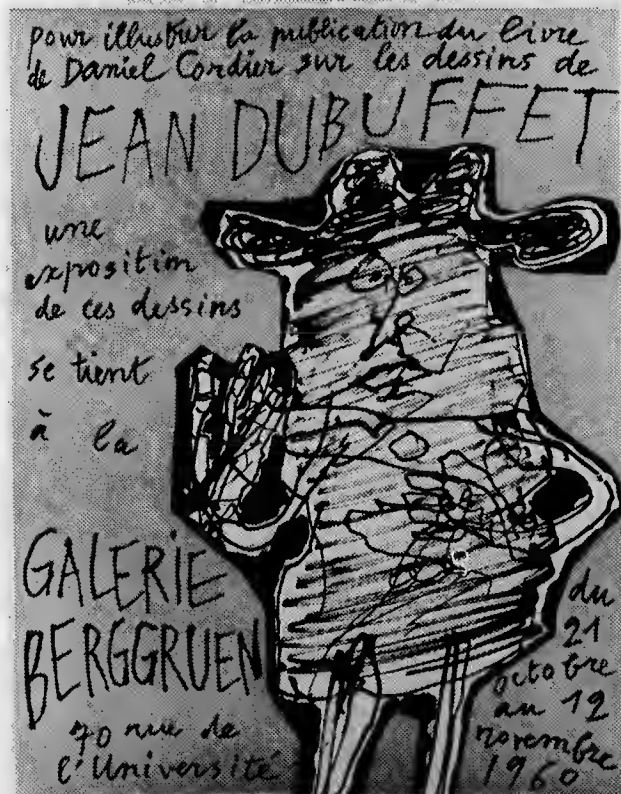 pour illustrer la publication du livre
de Daniel Cordier sur les dessins de
JEAN DUBUFFET
une
exposition
de ces dessins
se tient
à la
GALERIE
BERGGRUEN
70 rue de
l'Université
du
21
octobre
au 12
novembre
1960